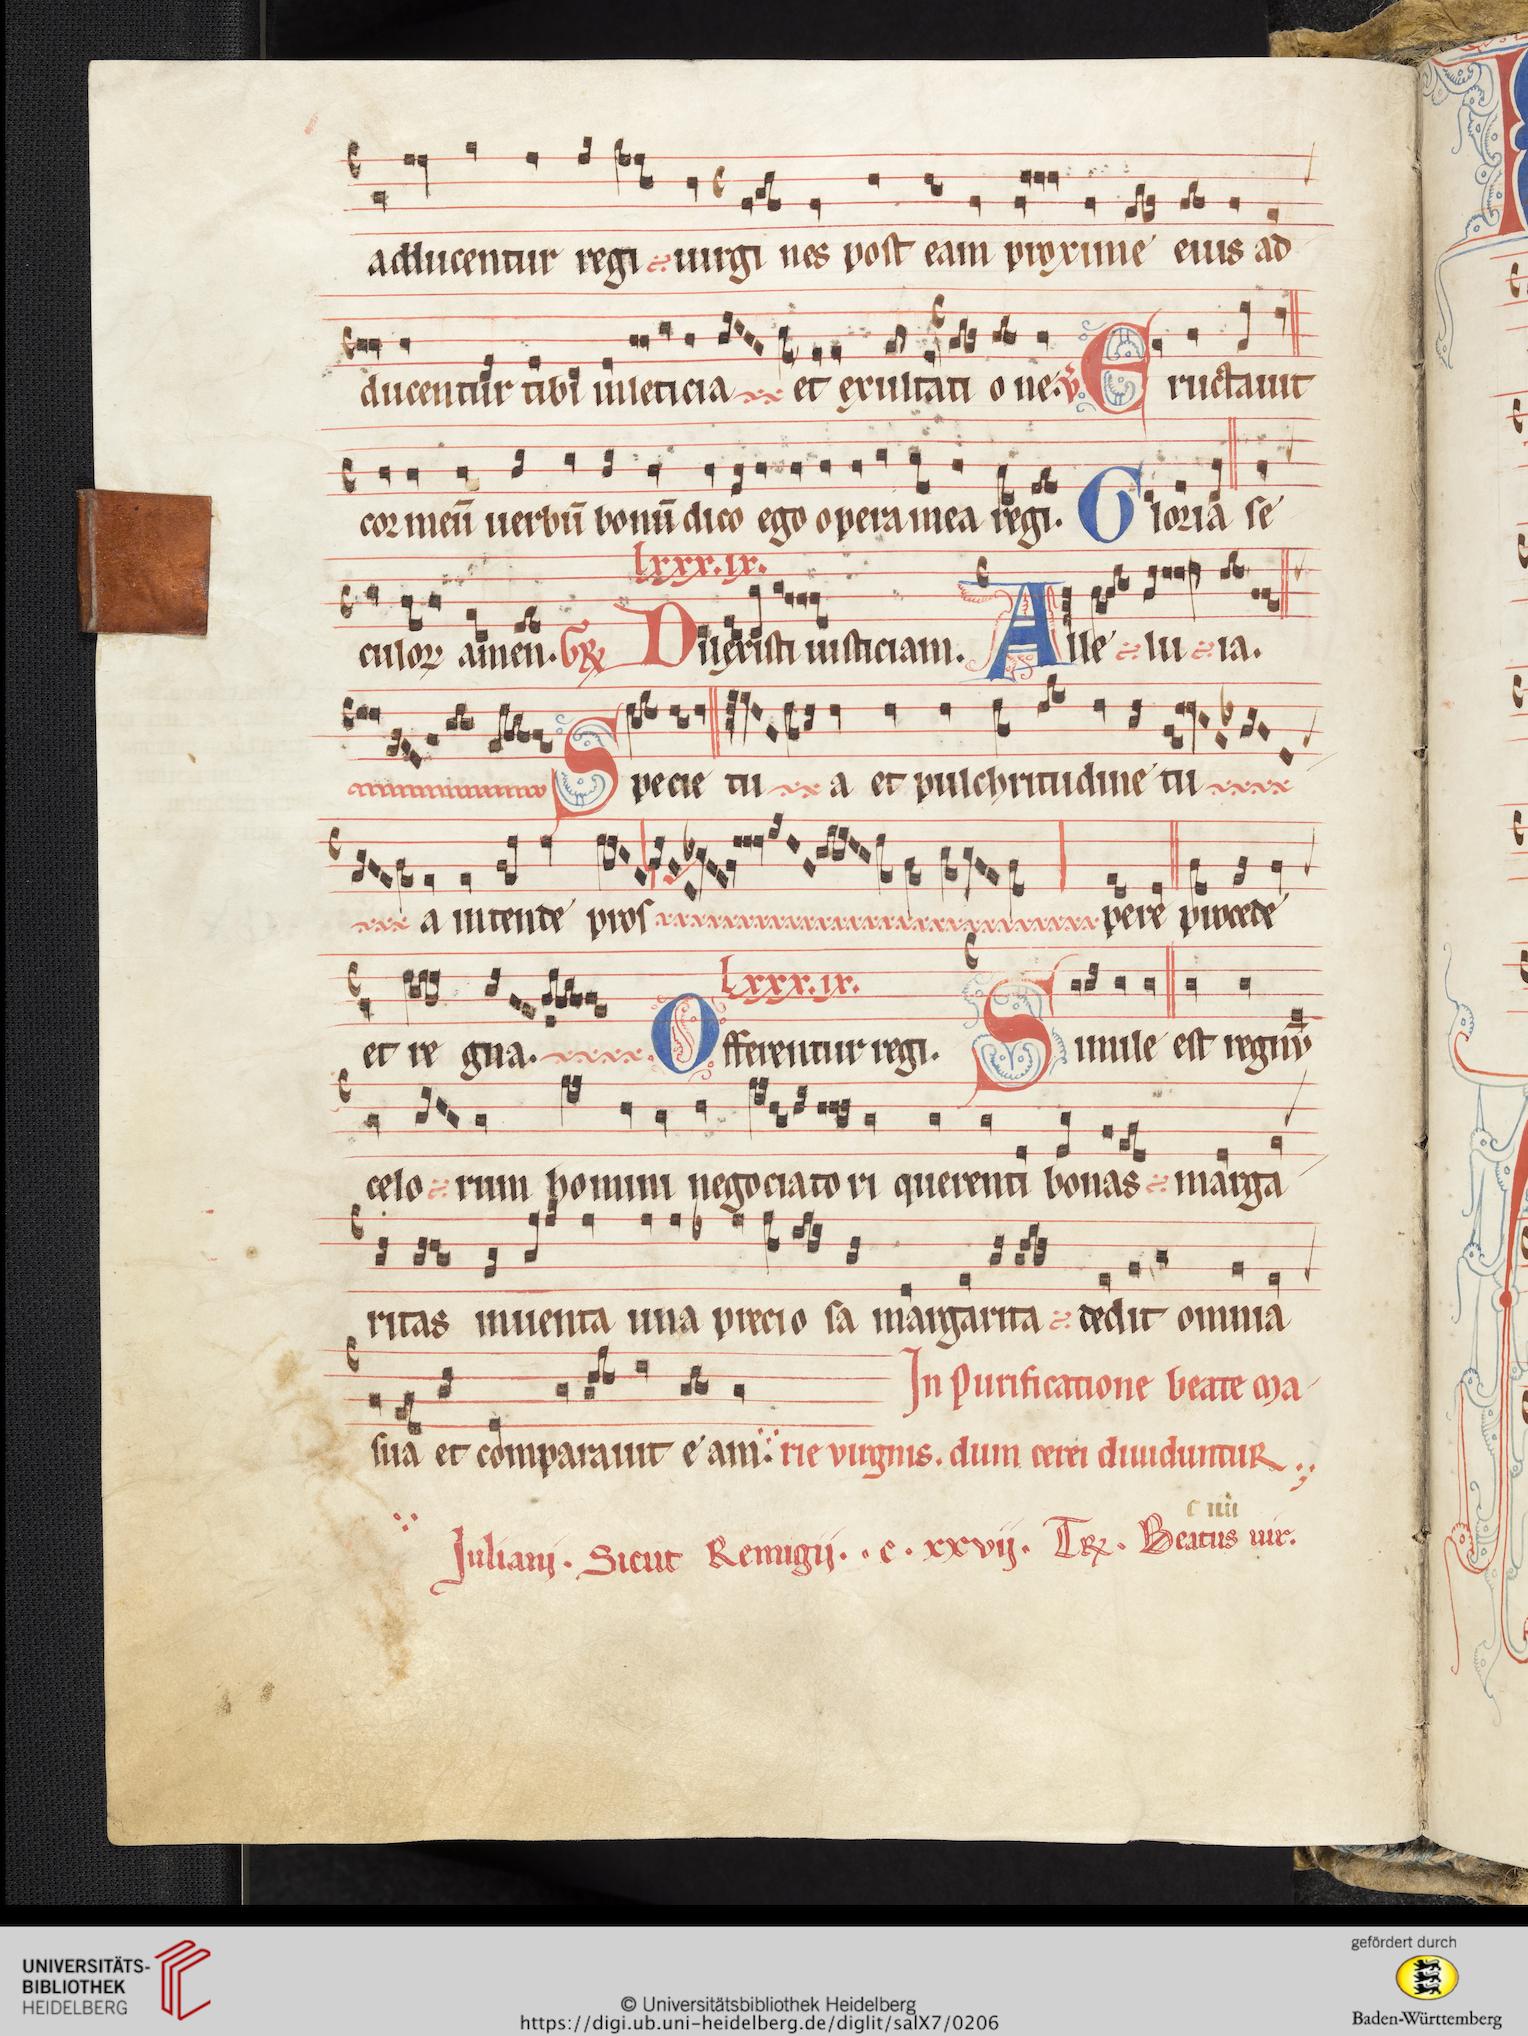 adducentur regi uirgi nes post eam proxime eius ad
ducentur tibi in leticia et exultati o ne. ℣ E ructauit
cor meū uerbū bonū dico ego opera mea regi. Gloria se
lxxx.ix.
culoꝝ amen. Gꝶ Dilexisti iusticiam. Alle lu ia.
Specie tu a et pulchritudine tu
a intende pros pere procede
Lxxx.ix.
et re gna. Offerentur regi. Simile est regnū
celo rum homini negociato ri querenti bonas marga
ritas inuenta una precio sa margarita dedit omnia
In purificatione beate Ma
sua et comparauit e am. rie virginis. dum cerei diuiduntur
c iiii
Juliani. Sicut Remigij. c. xxvij. Tꝶ. Beatus uir.
UNIVERSITÄTS-
BIBLIOTHEK
HEIDELBERG
© Universitätsbibliothek Heidelberg
https://digi.ub.uni-heidelberg.de/diglit/salX7/0206
gefördert durch
Baden-Württemberg